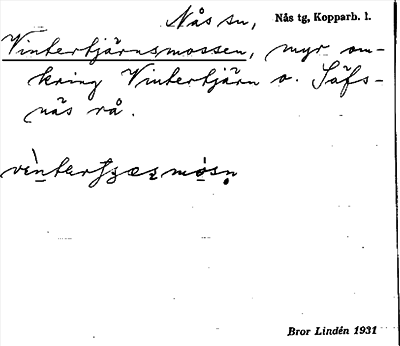 Nås sn, Nås tg, Kopparb. l.
Vintertjärnsmossen, myr om-
kring Vintertjärn o. Säfs-
näs rå.
Bror Lindén 1931